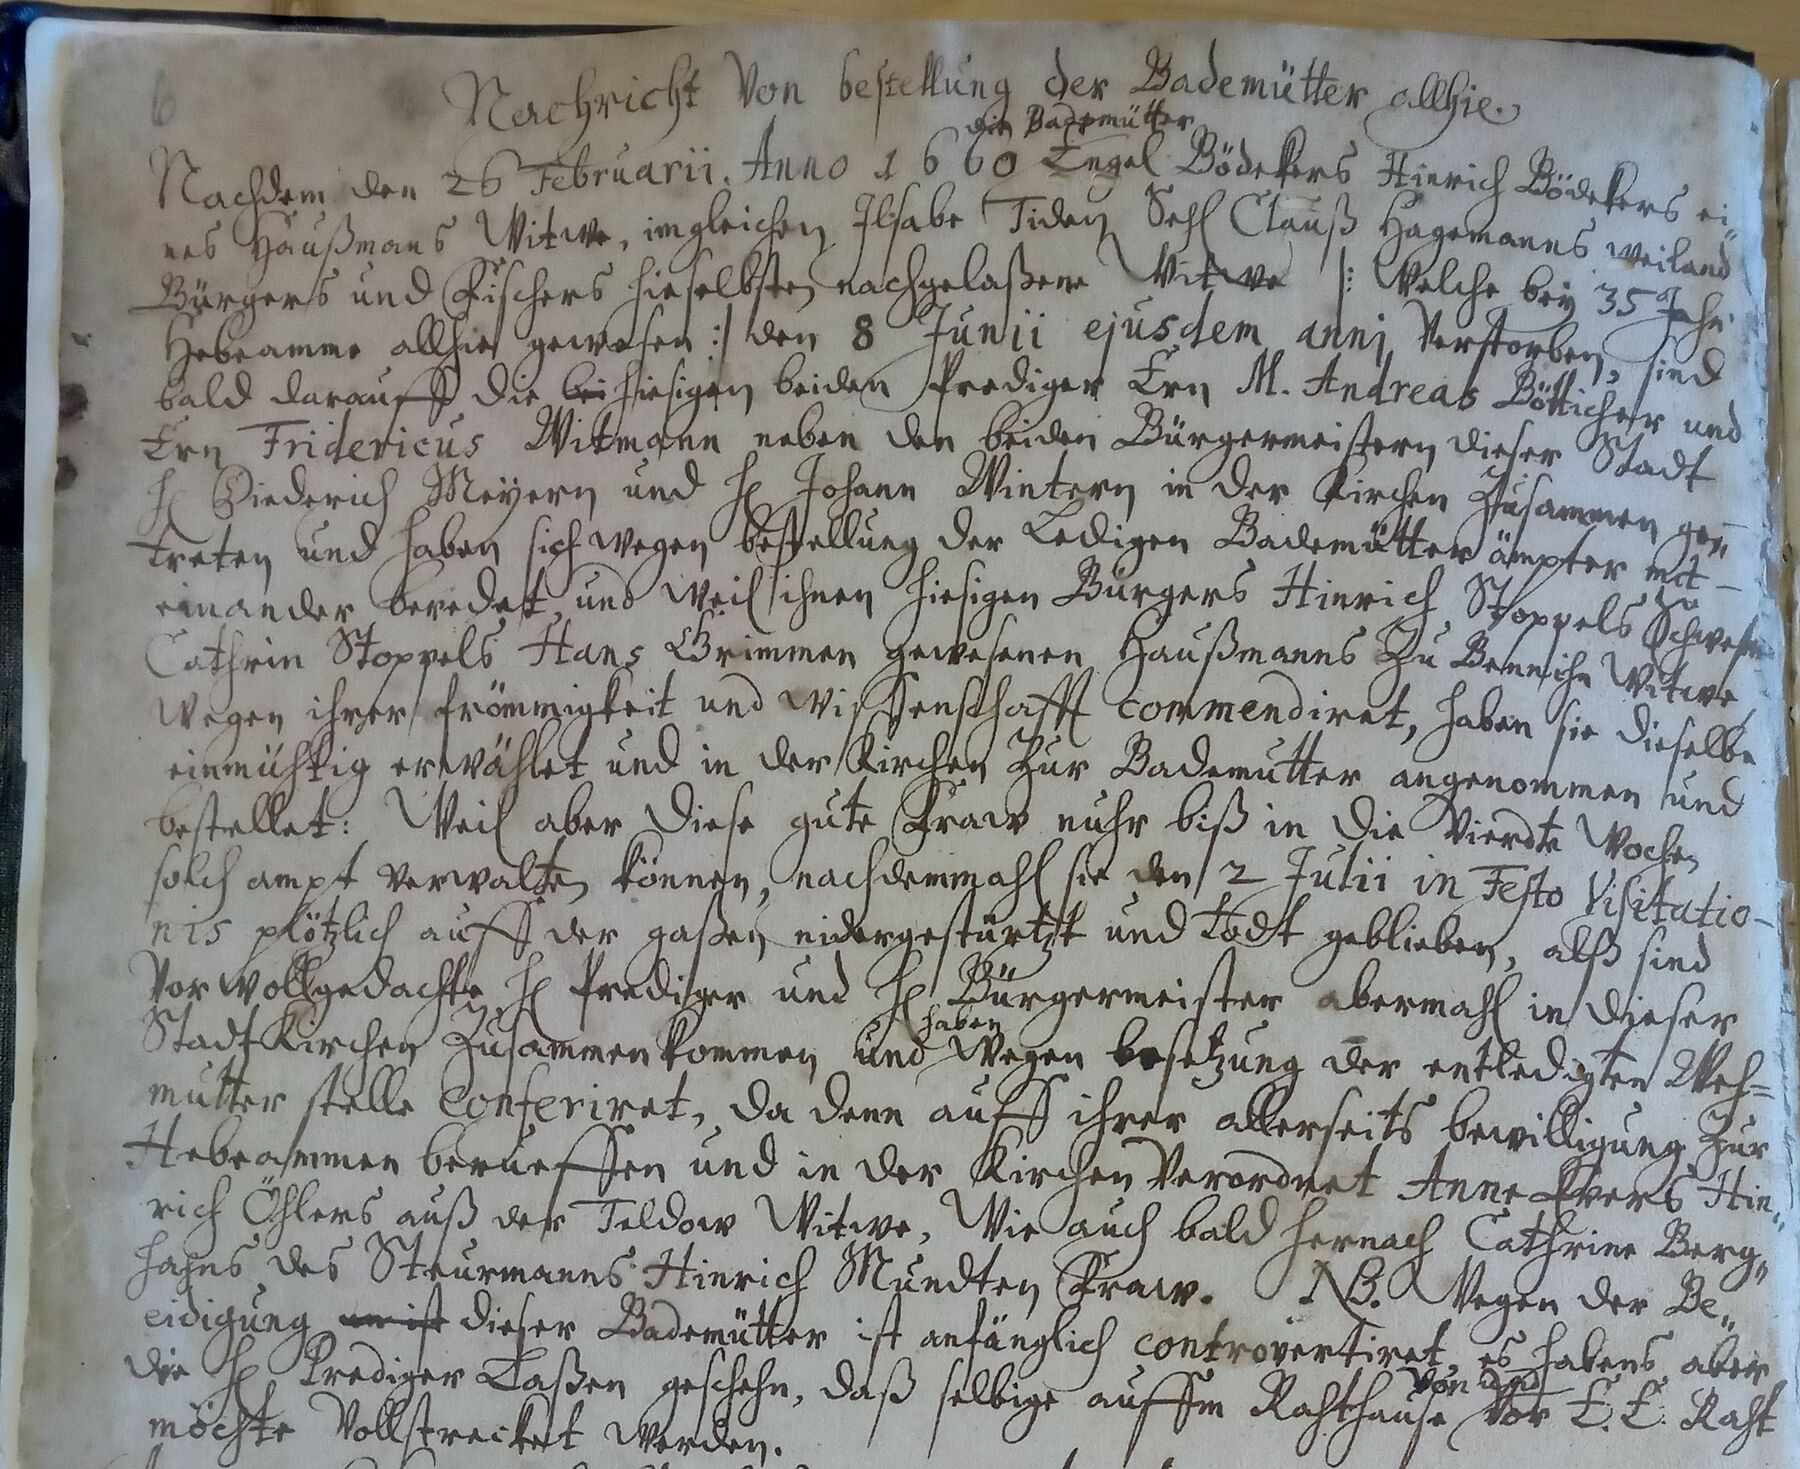 6
Nachricht Von bestellung der Bademütter allhie.
die Bademütter
Nachdem den 26 Februarii. Anno 1660 Engel Bödekers Hinrich Bödekers ei„
nes Haußmans Witwe, imgleichen Ilsabe Tiden Sehl Clauß Hagemanns weiland
Bürgers und Fischers hieselbsten nachgelaßene Witwe |: Welche bey 35 Jahr
Hebeamme allhie gewesen :| den 8 Junii ejusdem anni Verstorben, sind
bald darauff die hiesigen beiden Prediger Ern M. Andreas Bötticher und
Ern Fridericus Witmann neben den beiden Bürgermeistern dieser Stadt
H Diederich Meyern und H Johann Wintern in der Kirchen Zusammen ge„
treten und haben sich wegen bestellung der Ledigen Bademütter ämpter mit
einander beredet, und weil ihnen hiesigen Bürgers Hinrich Stoppels Schwester
Cathrin Stoppels Hans Grimmen gewesenen Haußmanns Zu Bennihn Witwe
wegen ihrer frömmigkeit und wissenschafft commendiret, haben sie dieselbe
einmühtig erwählet und in der Kirchen Zur Bademutter angenommen und
bestellet: Weil aber diese gute Fraw nuhr biß in die Vierdte Wochen
solch ampt verwalten können, nachdemmahl sie den 2 Julii in Festo Visitatio-
nis plötzlich auff der gaßen nidergestürtzt und todt geblieben, alß sind
Vorwollgedachte H Prediger und H Bürgermeister abermahl in dieser
haben
StadtKirchen Zusammenkommen und wegen besetzung der entledigten Weh=
mutter stelle conferiret, da denn auff ihrer allerseits bewilligung Zur
Hebeammen berueffen und in der Kirchen Verordnet Anne Evers Hin„
rich Öhlers auß der Teldow Witwe, Wie auch bald hernach Cathrine Berg„
hahns des Steurmanns Hinrich Mundten Fraw. NB. Wegen der Be„
eidigung dieser Bademütter ist anfänglich controvertiret, es habens aber
von und
die H Prediger Laßen geschehn, daß selbige auffm Rahthause Vor E. E. Raht
möchte Vollstrecket werden.